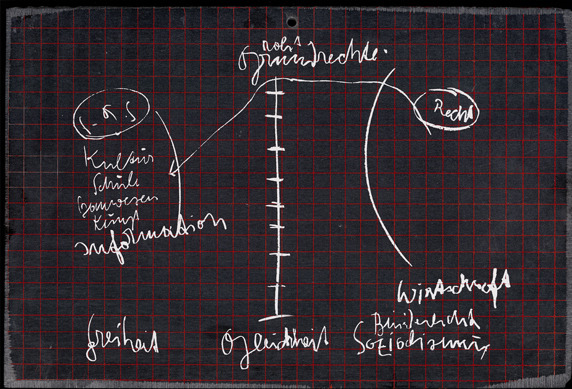 Grundrechte
Recht
Kultur
Schule
Kunst
Information
Wirtschaft
Freiheit
Gleichheit
Sozialismus